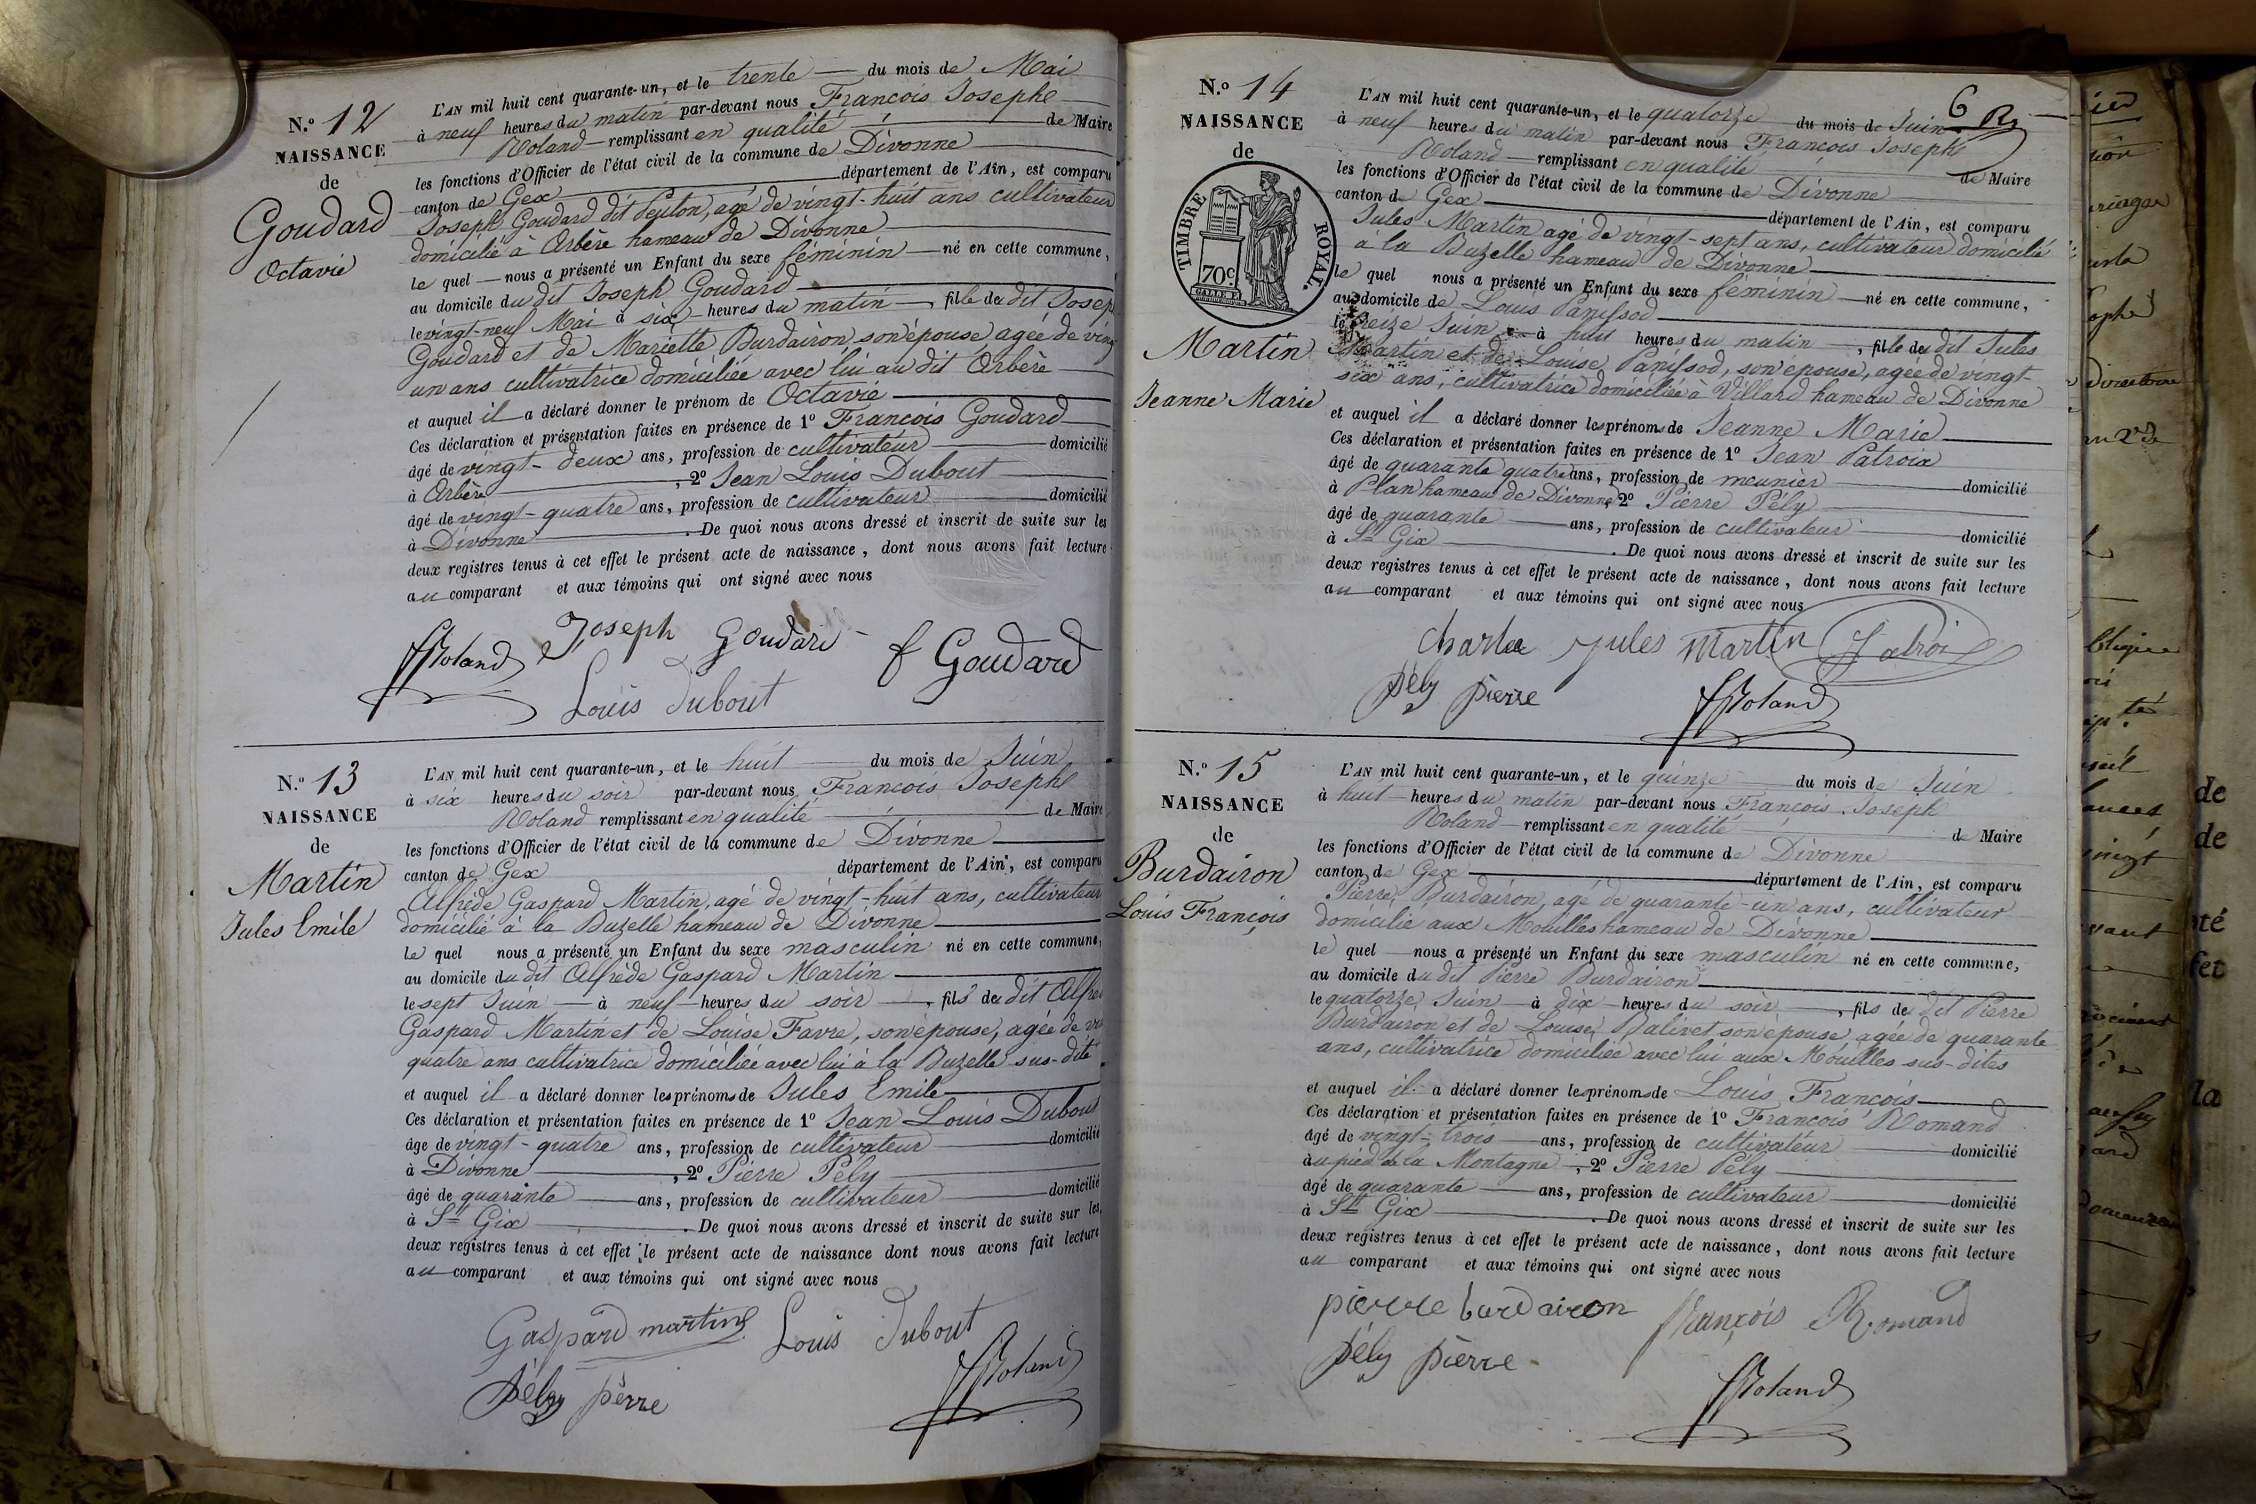 N.° 12
NAISSANCE
de
Goudard
Octavie
L'AN mil huit cent quarante-un, et le trente du mois de Mai
à neuf heures du matin par-devant nous François Josephe
Roland remplissant en qualité de Maire
les fonctions d'Officier de l'état civil de la commune de Divonne
canton de Gex département de l'Ain, est comparu
Joseph Goudard dit Peuton, agé de vingt-huit ans cultivateur
domicilié à Arbère hameau de Divonne
le quel nous a présenté un Enfant du sexe féminin né en cette commune,
au domicile du dit Joseph Goudard
le vingt-neuf Mai à six heures du matin, fille du dit Josep
Goudard et de Mariette Burdairon son épouse agée de ving
un ans cultivatrice domiciliée avec lui au dit Arbère
et auquel il a déclaré donner le prénom de Octavie
Ces déclaration et présentation faites en présence de 1° François Goudard
âgé de vingt-deux ans, profession de cultivateur domicilié
à Arbère, 2° Jean Louis Dubout
âgé de vingt-quatre ans, profession de cultivateur domicilié
à Divonne. De quoi nous avons dressé et inscrit de suite sur les
deux registres tenus à cet effet le présent acte de naissance, dont nous avons fait lecture
au comparant et aux témoins qui ont signé avec nous
Joseph Goudard f Goudard
fRoland
Louis Dubout
N.° 13
NAISSANCE
de
Martin
Jules Emile
L'AN mil huit cent quarante-un, et le huit du mois de Juin
à six heures du soir par-devant nous François Joseph
Roland remplissant en qualité de Maire
les fonctions d'Officier de l'état civil de la commune de Divonne
canton de Gex département de l'Ain, est comparu
Alfrède Gaspard Martin, agé de vingt-huit ans, cultivateur
domicilié à la Buzelle hameau de Divonne
le quel nous a présenté un Enfant du sexe masculin né en cette commune,
au domicile du dit Alfrède Gaspard Martin
le sept Juin à neuf heures du soir, fils du dit Alfre
Gaspard Martin et de Louise Favre, son épouse, agée de vin
quatre ans cultivatrice domiciliée avec lui à la Buzelle sus-dite
et auquel il a déclaré donner les prénoms de Jules Emile
Ces déclaration et présentation faites en présence de 1° Jean Louis Dubout
âge de vingt-quatre ans, profession de cultivateur domicilié
à Divonne, 2° Pierre Pély
âgé de quarante ans, profession de cultivateur domicilié
à St Gix. De quoi nous avons dressé et inscrit de suite sur les
deux registres tenus à cet effet le présent acte de naissance dont nous avons fait lecture
au comparant et aux témoins qui ont signé avec nous
Gaspard martin Louis Dubout
Pély pèrre fRoland
N.° 14
NAISSANCE
de
TIMBRE ROYAL.
70c
Martin
Jeanne Marie
6
L'AN mil huit cent quarante-un, et le quatorze du mois de Juin
à neuf heures du matin par-devant nous François Joseph
Roland remplissant en qualité de Maire
les fonctions d'Officier de l'état civil de la commune de Divonne
canton de Gex département de l'Ain, est comparu
Jules Martin agé de vingt-sept ans, cultivateur domicilié
à la Buzelle hameau de Divonne
le quel nous a présenté un Enfant du sexe féminin né en cette commune,
au domicile de Louis Panissod
le treize Juin à huit heures du matin, fille du dit Jules
Martin et de Louise Panissod, son épouse, agée de vingt-
six ans, cultivatrice domiciliée à Villard hameau de Divonne
et auquel il a déclaré donner les prénoms de Jeanne Marie
Ces déclaration et présentation faites en présence de 1° Jean Patroix
âgé de quarante quatre ans, profession de meunier domicilié
à Plan hameau de Divonne, 2° Pierre Pély
âgé de quarante ans, profession de cultivateur domicilié
à St Gix. De quoi nous avons dressé et inscrit de suite sur les
deux registres tenus à cet effet le présent acte de naissance, dont nous avons fait lecture
au comparant et aux témoins qui ont signé avec nous
Charle jules martin
Pély pierre fRoland
N.° 15
NAISSANCE
de
Burdairon
Louis François
L'AN mil huit cent quarante-un, et le quinze du mois de Juin
à huit heures du matin par-devant nous François Joseph
Roland remplissant en qualité de Maire
les fonctions d'Officier de l'état civil de la commune de Divonne
canton de Gex département de l'Ain, est comparu
Pierre Burdairon, agé de quarante-un ans, cultivateur
domicilié aux Mouilles hameau de Divonne
le quel nous a présenté un Enfant du sexe masculin né en cette commune,
au domicile du dit Pierre Burdairon
le quatorze Juin à dix heures du soir, fils du dit Pierre
Burdairon et de Louise Balivet son épouse, agée de quarante
ans, cultivatrice domiciliée avec lui aux Mouilles sus-dites
et auquel il a déclaré donner les prénoms de Louis François
Ces déclaration et présentation faites en présence de 1° François Romand
âgé de vingt-trois ans, profession de cultivateur domicilié
au pied de la Montagne, 2° Pierre Pély
âgé de quarante ans, profession de cultivateur domicilié
à St Gix. De quoi nous avons dressé et inscrit de suite sur les
deux registres tenus à cet effet le présent acte de naissance, dont nous avons fait lecture
au comparant et aux témoins qui ont signé avec nous
pierre burdairon françois Romand
Pély pierre
fRoland